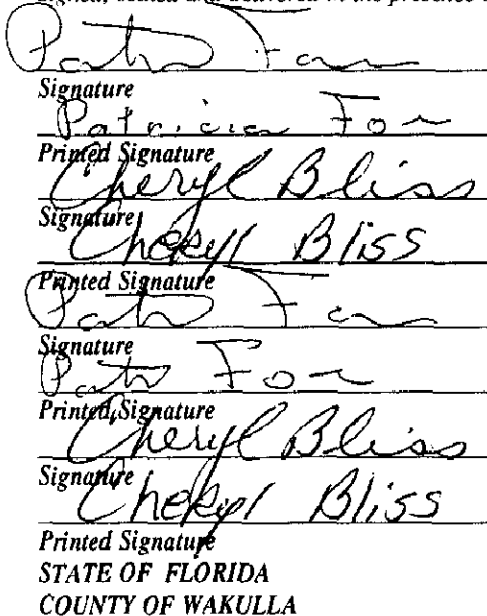 Signed, sealed and delivered in the presence
Signature
Patricia
Printed Signature
Cheryl Bliss
Signature
Cheryl Bliss
Printed Signature
Signature
Printed Signature
Cheryl Bliss
Signature
Cheryl Bliss
Printed Signature
STATE OF FLORIDA
COUNTY OF WAKULLA